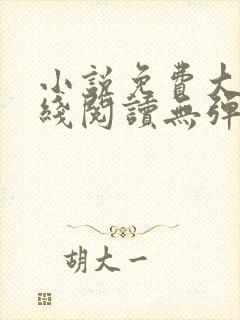 小說免費大
綫閱讀無彈
胡大一